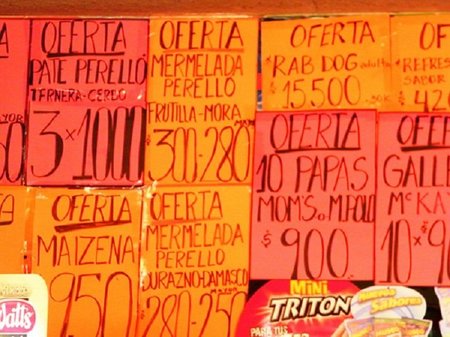 OFERTA
PATE PERELLÓ
TERNERA-CERDO
3 x 1000
OFERTA
MERMELADA
PERELLÓ
FRUTILLA-MORA
300-280
OFERTA
RAB DOG adulto
15.500
OF
REFRES
SABOR
420
OFERTA
MAIZENA
950
OFERTA
MERMELADA
PERELLO
DURAZNO-DAMASCO
280-250
OFERTA
10 PAPAS
MOMS. o M.POLO
$ 900
OFE
GALLE
McKA
10 x 90
Watts
MINI
TRITON
PARA TUS